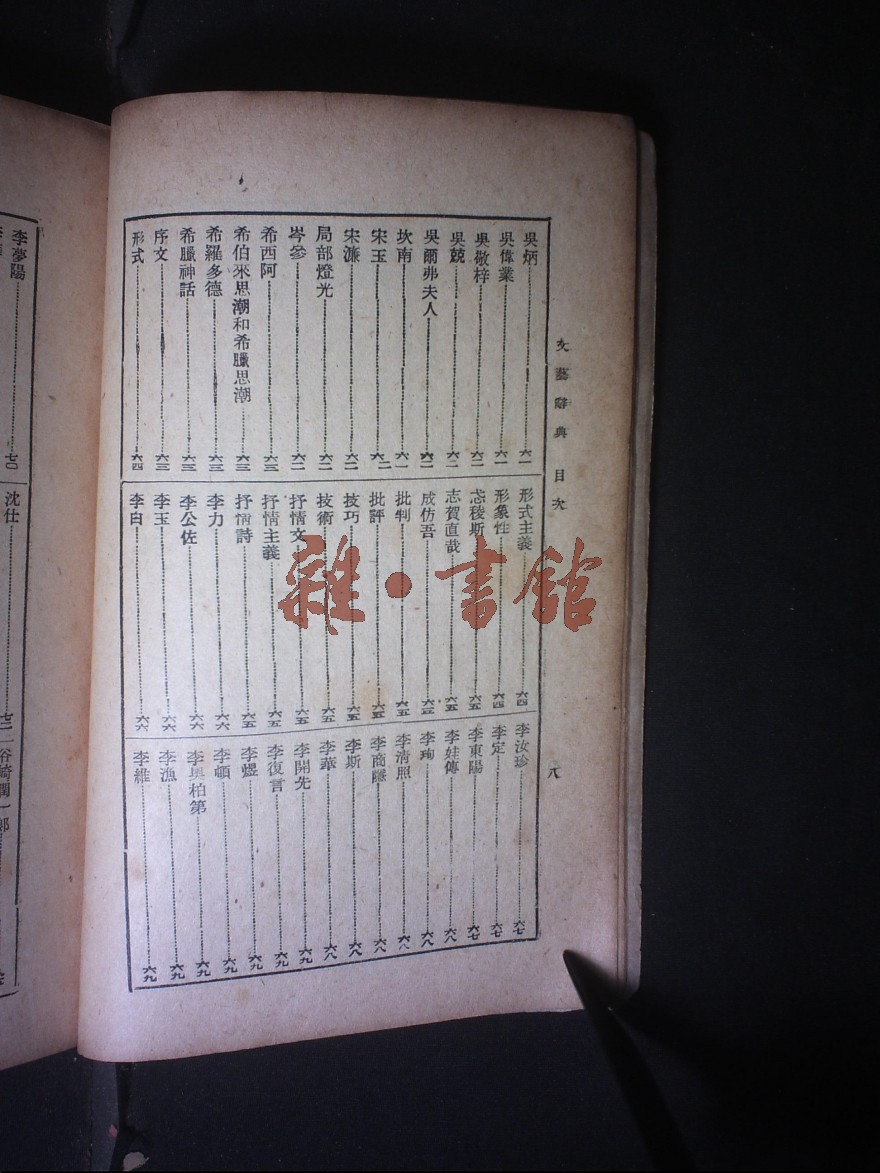 文藝辭典 目次
八
吳炳 六一
吳偉業 六一
吳敬梓 六一
吳兢 六一
吳爾弗夫人 六一
坎南 六一
宋玉 六一
宋濂 六二
局部燈光 六二
岑參 六二
希西阿 六三
希伯來思潮和希臘思潮 六三
希羅多德 六三
希臘神話 六三
序文 六三
形式 六四
形式主義 六四
形象性 六四
忒稜斯 六五
志賀直哉 六五
成仿吾 六五
批判 六五
批評 六五
技巧 六五
技術 六五
抒情文 六五
抒情主義 六五
抒情詩 六五
李力 六六
李公佐 六六
李玉 六六
李白 六六
李汝珍 六七
李定 六七
李東陽 六七
李娃傳 六八
李珣 六八
李清照 六八
李商隱 六八
李斯 六八
李華 六八
李開先 六九
李復言 六九
李煜 六九
李頓 六九
李卜柏第 六九
李漁 六九
李維 六九
李夢陽 七〇
沈仕
谷崎潤一郎
雜·書館